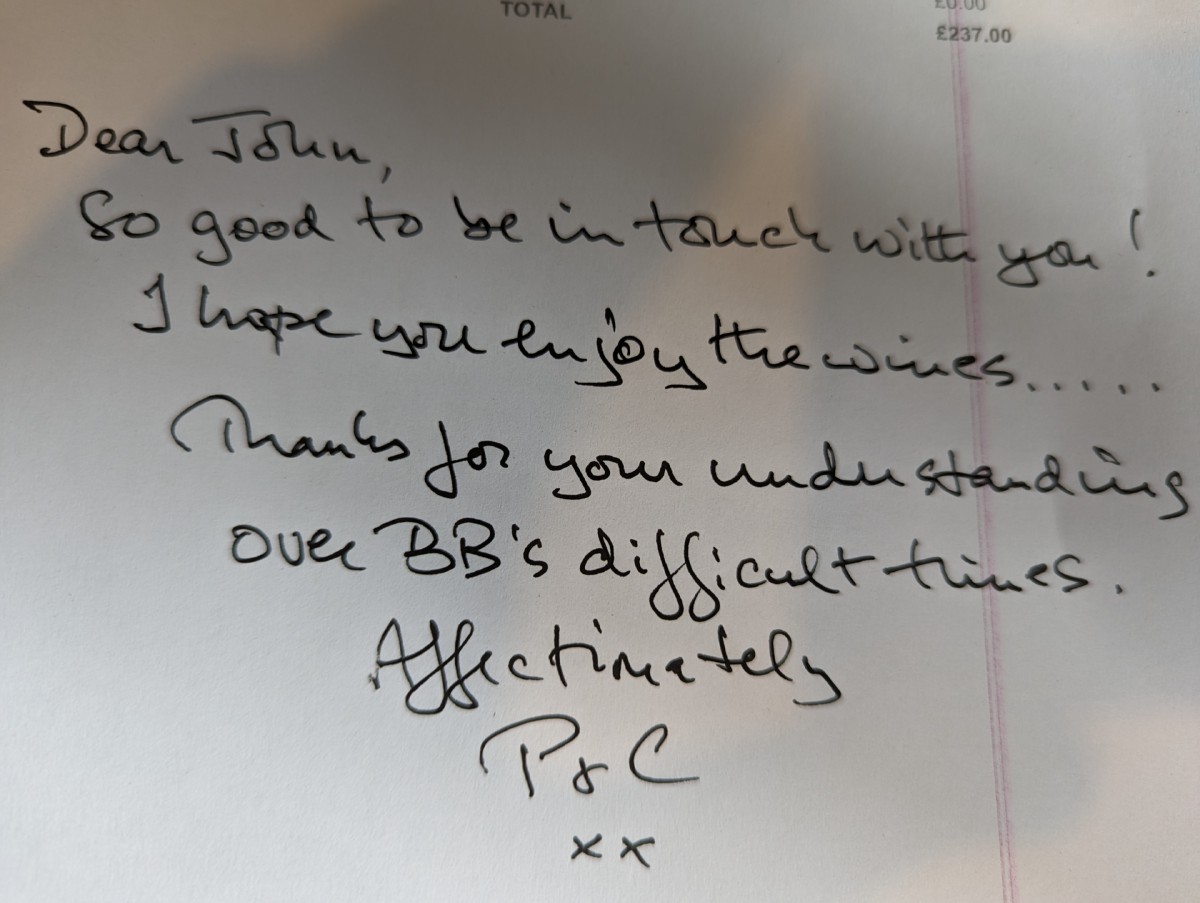 TOTAL
£0.00
£237.00
Dear John,
So good to be in touch with you!
I hope you enjoy the wines.....
Thanks for your understanding
over BB's difficult times.
Affectionately
P & C
x x